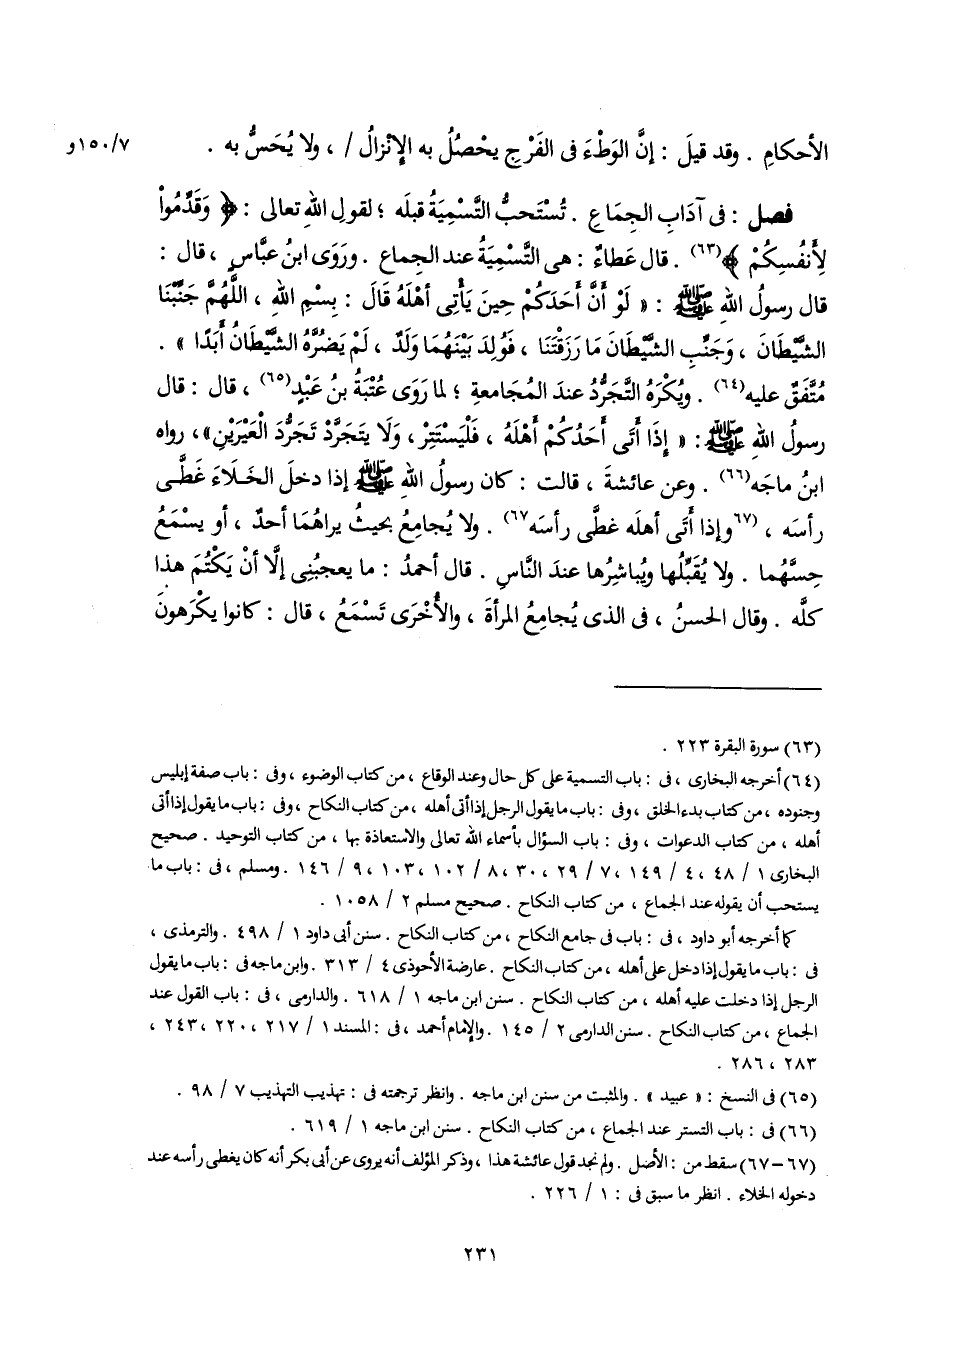 الأحكامِ . وقد قيلَ : إنَّ الوَطْءَ فى الفَرْجِ يحْصُلُ به الإِنْزالُ / ، ولا يُحَسُّ به . ١٥٠/٧و
فصل : فى آدَابِ الجِمَاعِ . تُسْتَحبُّ التَّسْمِيَةُ قبلَه ؛ لقولِ اللهِ تعالى : ﴿ وَقَدِّمُواْ
لِأَنفُسِكُمْ ﴾(٦٣) . قال عَطاءٌ : هى التَّسْمِيَةُ عند الجِماع . ورَوَى ابنُ عبَّاسٍ ، قال :
قال رسولُ اللهِ ﷺ : « لَوْ أَنَّ أَحَدَكُمْ حِينَ يَأْتِى أهْلَهُ قَالَ : بِسْمِ اللهِ ، اللَّهُمَّ جَنِّبْنَا
الشَّيْطَانَ ، وَجَنِّبِ الشَّيْطَانَ مَا رَزَقْتَنَا ، فَوُلِدَ بَيْنَهُمَا وَلَدٌ ، لَمْ يَضُرَّهُ الشَّيْطَانُ أَبَدًا » .
مُتَّفَقٌ عليه(٦٤) . ويُكْرَهُ التَّجَرُّدُ عندَ المُجَامعةِ ؛ لما رَوَى عُتْبَةُ بنُ عَبْدٍ(٦٥) ، قال : قال
رسولُ اللهِ ﷺ : « إِذَا أَتَى أَحَدُكُمْ أَهْلَهُ ، فَلْيَسْتَتِرْ ، وَلَا يَتَجَرَّدْ تَجَرُّدَ الْعَيْرَيْنِ » ، رواه
ابنُ ماجَه(٦٦) . وعن عائشةَ ، قالت : كان رسولُ اللهِ ﷺ إذا دخلَ الخَلَاءَ غَطَّى
رأسَه ، (٦٧وإذا أَتَى أهلَه غطَّى رأسَه٦٧) . ولا يُجامِعُ بحيثُ يراهُمَا أحدٌ ، أو يسْمَعُ
حِسَّهُما . ولا يُقَبِّلُها ويُباشِرُها عندَ النَّاسِ . قال أحمدُ : ما يعجبُنِى إلَّا أنْ يَكْتُمَ هذا
كلَّه . وقال الحسنُ ، فى الذى يُجامِعُ المرأةَ ، والأُخْرَى تَسْمَعُ ، قال : كانوا يكْرَهونَ
(٦٣) سورة البقرة ٢٢٣ .
(٦٤) أخرجه البخارى ، فى : باب التسمية على كل حال وعند الوقاع ، من كتاب الوضوء ، وفى : باب صفة إبليس
وجنوده ، من كتاب بدء الخلق ، وفى : باب ما يقول الرجل إذا أتى أهله ، من كتاب النكاح ، وفى : باب ما يقول إذا أتى
أهله ، من كتاب الدعوات ، وفى : باب السؤال بأسماء الله تعالى والاستعاذة بها ، من كتاب التوحيد . صحيح
البخارى ١ / ٤٨ ، ٤ / ١٤٩ ، ٧ / ٢٩ ، ٣٠ ، ٨ / ١٠٢ ، ١٠٣ ، ٩ / ١٤٦ . ومسلم ، فى : باب ما
يستحب أن يقوله عند الجماع ، من كتاب النكاح . صحيح مسلم ٢ / ١٠٥٨ .
كما أخرجه أبو داود ، فى : باب فى جامع النكاح ، من كتاب النكاح . سنن أبى داود ١ / ٤٩٨ . والترمذى ،
فى : باب ما يقول إذا دخل على أهله ، من كتاب النكاح . عارضة الأحوذى ٤ / ٣١٣ . وابن ماجه فى : باب ما يقول
الرجل إذا دخلت عليه أهله ، من كتاب النكاح . سنن ابن ماجه ١ / ٦١٨ . والدارمى ، فى : باب القول عند
الجماع ، من كتاب النكاح . سنن الدارمى ٢ / ١٤٥ . والإمام أحمد ، فى : المسند ١ / ٢١٧ ، ٢٢٠ ، ٢٤٣ ،
٢٨٣ ، ٢٨٦ .
(٦٥) فى النسخ : « عبيد » . والمثبت من سنن ابن ماجه . وانظر ترجمته فى : تهذيب التهذيب ٧ / ٩٨ .
(٦٦) فى : باب التستر عند الجماع ، من كتاب النكاح . سنن ابن ماجه ١ / ٦١٩ .
(٦٧-٦٧) سقط من : الأصل . ولم نجد قول عائشة هذا ، وذكر المؤلف أنه يروى عن أبى بكر أنه كان يغطى رأسه عند
دخوله الخلاء . انظر ما سبق فى : ١ / ٢٢٦ .
٢٣١